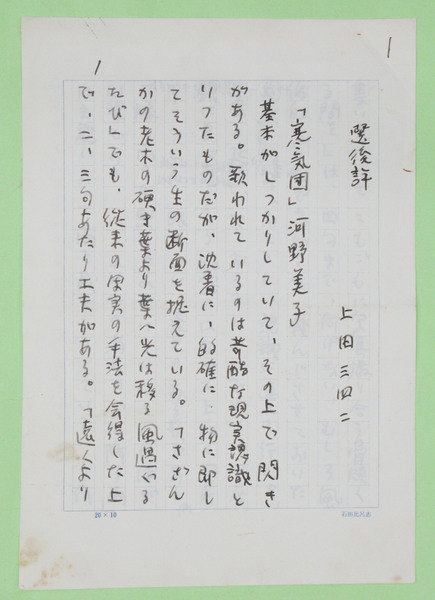 1
選後評
上田三四二
「寒気団」河野美子
基本がしつかりしていて、その上で閃き
がある。歌われているのは苛酷な現実認識と
いつたものだが、沈着に、的確に、物に即し
てそういう生の断面を捉えている。「さざん
かの老木の硬き葉より葉へ光は移る風過ぐる
たび」でも、従来の写実の手法を会得した上
で、二、三句あたり工夫がある。「遠くより
1
20×10
石田比呂志